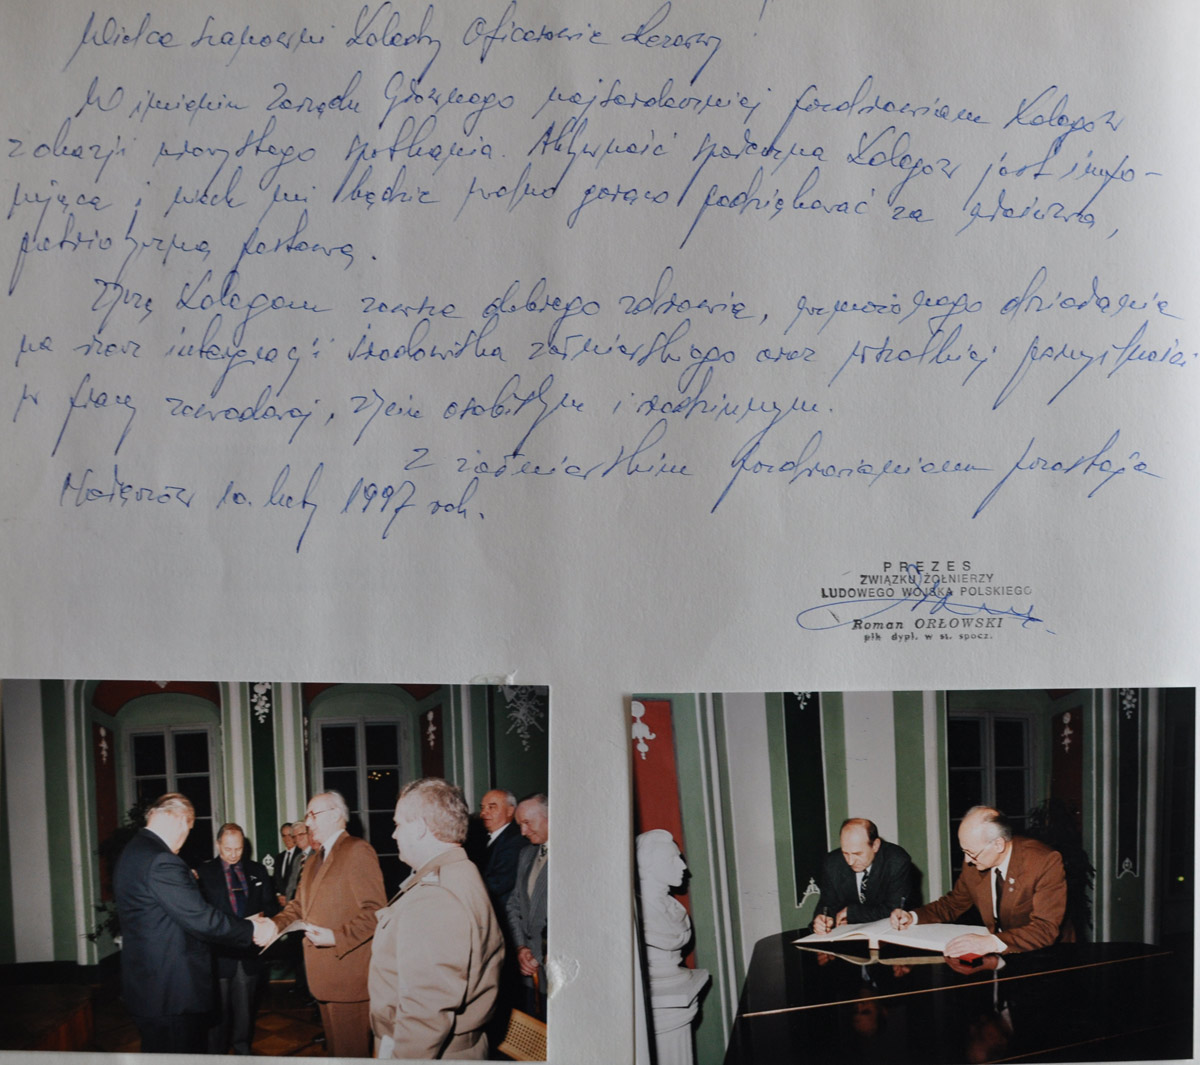 Wielce szanowni Koledzy Oficerowie Rezerwy!
W imieniu Zarządu Głównego najserdeczniej pozdrawiam Kolegów
z okazji uroczystego spotkania. Aktywność społeczna Kolegów jest impo-
nująca i niech mi będzie wolno gorąco podziękować za właściwą,
patriotyczną postawę.
Życzę Kolegom zawsze dobrego zdrowia, wzmożonego działania
na rzecz integracji środowiska żołnierskiego oraz wszelkiej pomyślności
w pracy zawodowej, życiu osobistym i rodzinnym.
Z żołnierskim pozdrowieniem pozostaję
Nałęczów 10. luty 1997 rok.
PREZES
ZWIĄZKU ŻOŁNIERZY
LUDOWEGO WOJSKA POLSKIEGO
Roman ORŁOWSKI
płk dypl. w st. spocz.